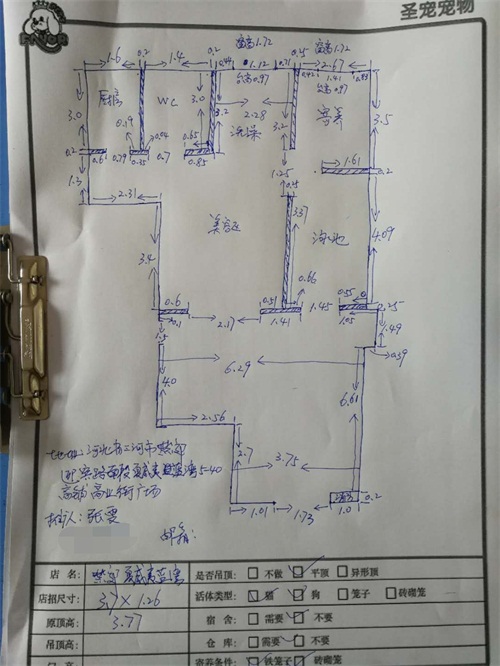 圣宠宠物
窗高1.72
窗高1.72
1.6
0.2
1.4
0.2
0.44
1.12
0.71
0.5
2.67
台高0.97
0.42
1.41
0.83
台高0.97
厨房
WC
3.0
3.0
3.2
2.28
洗澡
3.2
寄养
3.5
0.19
0.04
0.65
0.2
0.6
0.79
0.35
0.7
0.85
1.61
0.2
1.3
1.25
2.31
3.4
美容区
3.37
沟地
4.09
0.66
0.6
0.51
1.45
0.55
0.25
0.1
2.17
1.41
1.05
1.49
1.5
0.39
6.29
4.0
6.61
2.56
2.7
3.75
1.01
1.73
1.0
0.2
地址:河北省三河市燕郊
5-40
高铺商业街广场
张雯
邮箱:
店 名:
是否吊顶: 不做 平顶 异形顶
店招尺寸: 3.7×1.26
活体类型: 猫 狗 笼子 砖砌笼
原顶高: 3.77
宿 舍: 需要 不要
吊顶高:
仓 库: 需要 不要
寄养条件: 铁笼子 砖砌笼